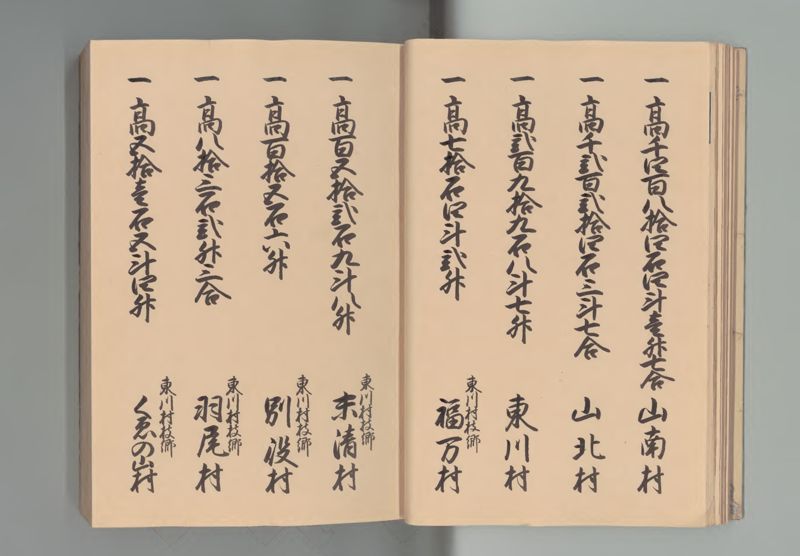 一 高千四百八拾四石四斗壱升七合 山南村
一 高千弐百弐拾四石三斗七合 山北村
一 高弐百九拾九石八斗七升 東川村
一 高七拾石四斗弐升 東川村枝郷 福万村
一 高百五拾弐石九斗八升 東川村枝郷 末清村
一 高百拾五石六升 東川村枝郷 別役村
一 高八拾三石弐升三合 東川村枝郷 羽尾村
一 高五拾壱石五斗四升 東川村枝郷 くゑの山村